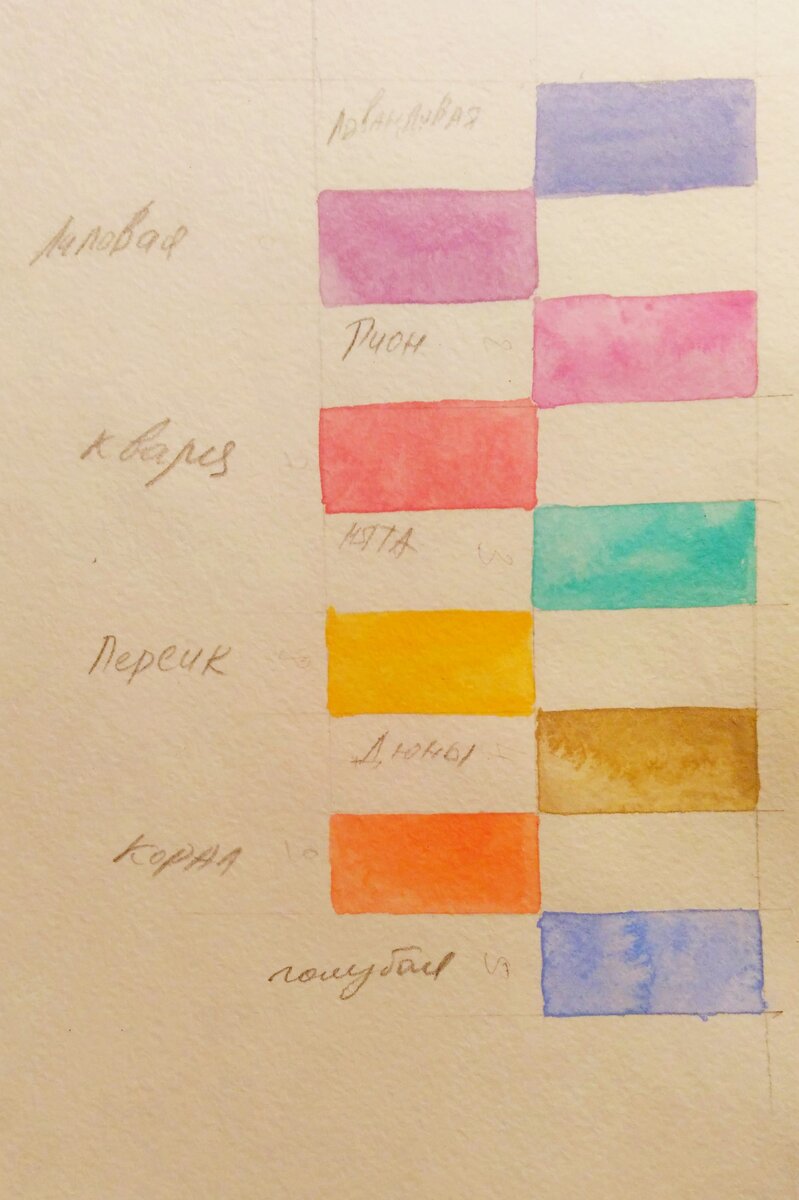 Лавандовая
Лиловая
Пион
Кварц
мята
Персик
Дюны
Корал
голубая